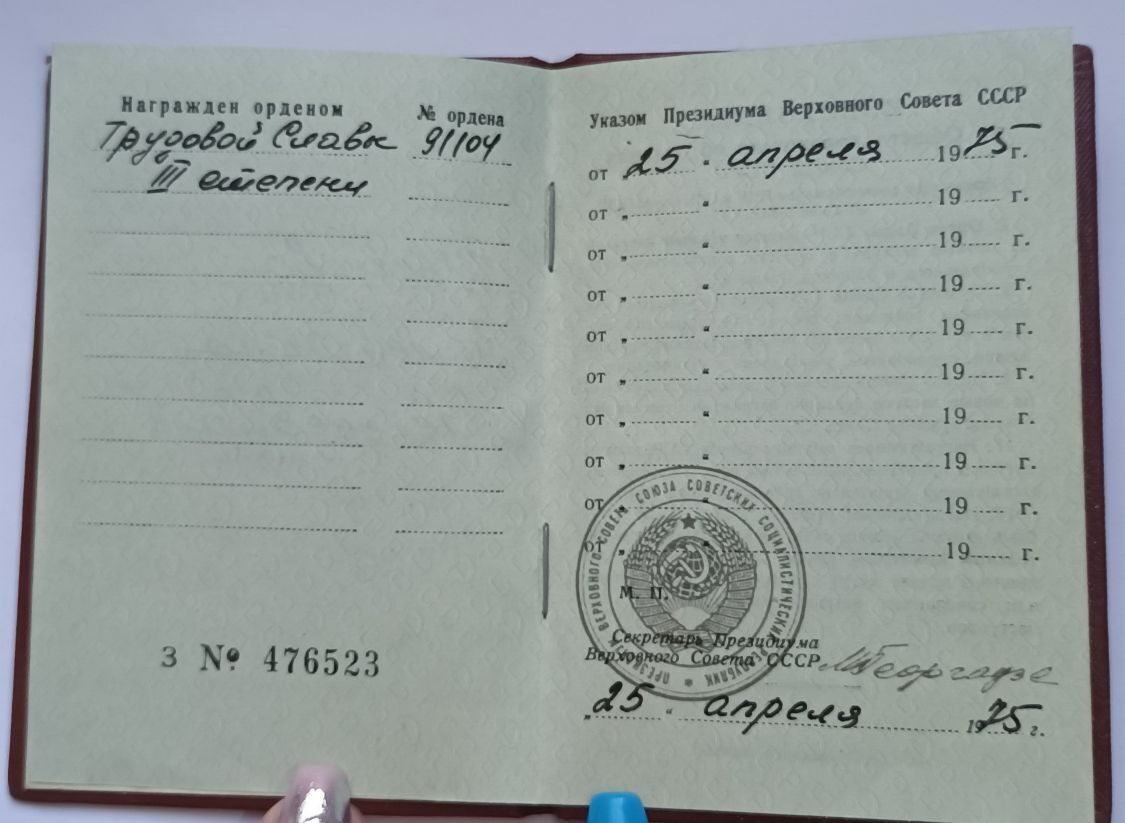 Награжден орденом
Трудовой Славы
III степени
№ ордена
91104
З № 476523
Указом Президиума Верховного Совета СССР
от „ 25 “ апреля 1975 г.
от „ “ 19 г.
от „ “ 19 г.
от „ “ 19 г.
от „ “ 19 г.
от „ “ 19 г.
от „ “ 19 г.
от „ “ 19 г.
от „ “ 19 г.
от „ “ 19 г.
ПРЕЗИДИУМ ВЕРХОВНОГО СОВЕТА СОЮЗА СОВЕТСКИХ СОЦИАЛИСТИЧЕСКИХ РЕСПУБЛИК
М. П.
Секретарь Президиума
Верховного Совета СССР М Георгадзе
„ 25 “ апреля 1975 г.